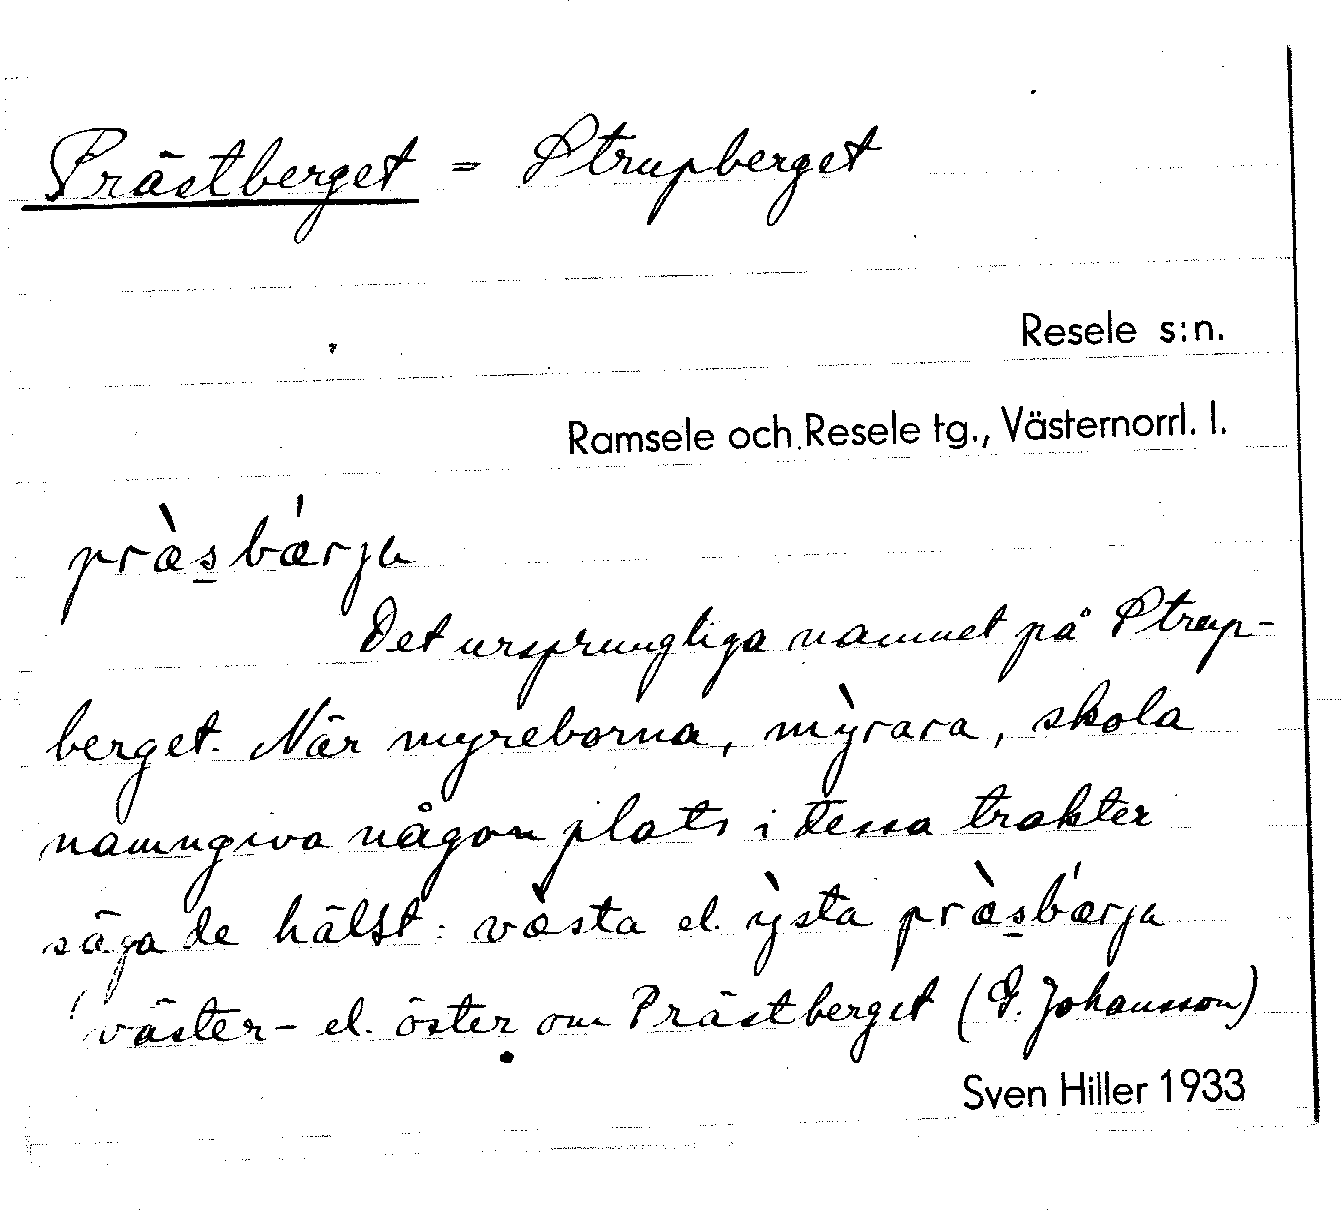 Prästberget = Strupberget
Resele s:n.
Ramsele och Resele tg., Västernorrl. l.
præ̀s̲bǽrja
Det ursprungliga namnet på Strup-
berget. När myreborna, mỳrara, skola
namngiva någon plats i dessa trakter
säga de hälst: væ̀sta el. ỳsta præ̀s̲bǽrja
'väster- el. öster om Prästberget (G. Johansson)
Sven Hiller 1933